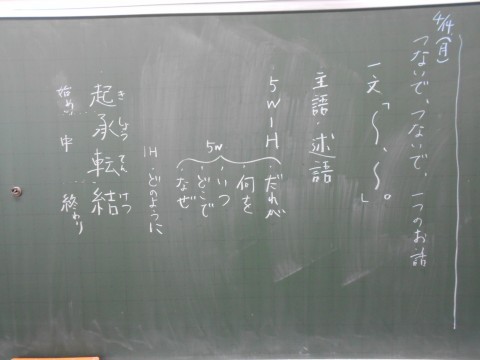 4/14(月)
つないで、つないで、一つのお話
一文「〜、〜。」
主語・述語
5W1H
だれが
何を
いつ
どこで
なぜ
5W
1H・どのように
起承転結
き しょう てん けつ
始め 中 終わり